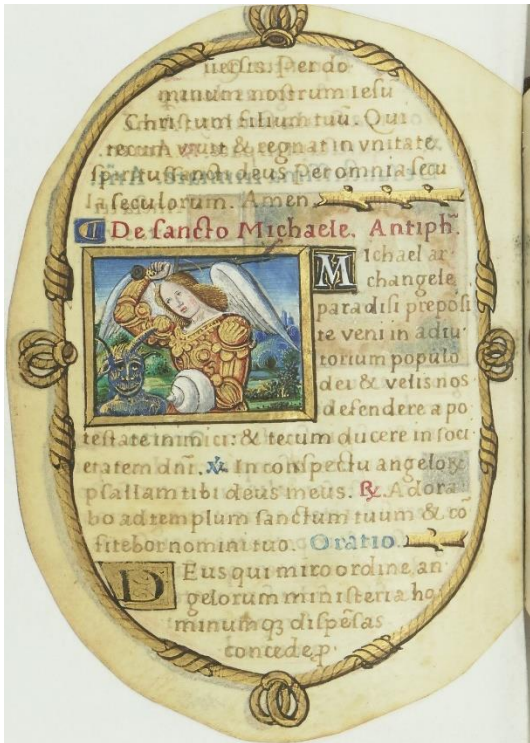 uersis. Per do
minum nostrum Iesū
Christum filium tuū. Qui
tecum viuit & regnat in vnitate
spiritussancti deus per omnia secu
la seculorum. Amen
De sancto Michaele. Antiph̄.
Michael ar
changele
paradisi preposi
te veni in adiu
torium populo
dei & velis nos
defendere a po
testate inimici: & tecum ducere in soci
etatem dn̄i. ℣. In conspectu angeloꝝ
psallam tibi deus meus. ℟. Adora
bo ad templum sanctum tuum & cō
fitebor nomini tuo. Oratio.
DEus qui miro ordine an
gelorum ministeria ho
minumqꝫ dispēsas
concede ꝓ.